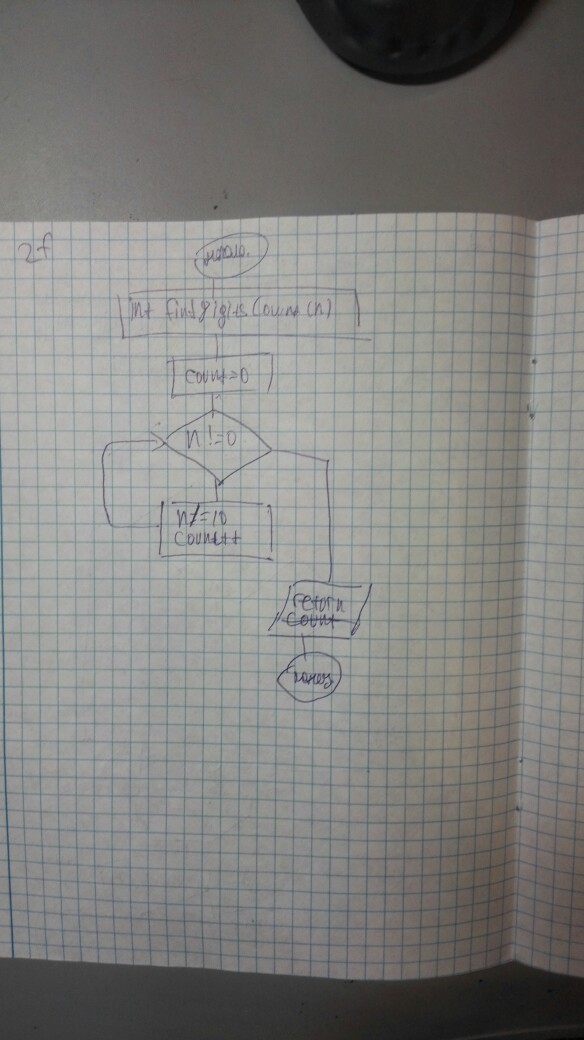 2f
начало.
int findDigitsCount (n)
count=0
n!=0
n/=10
count++
return
count
конец